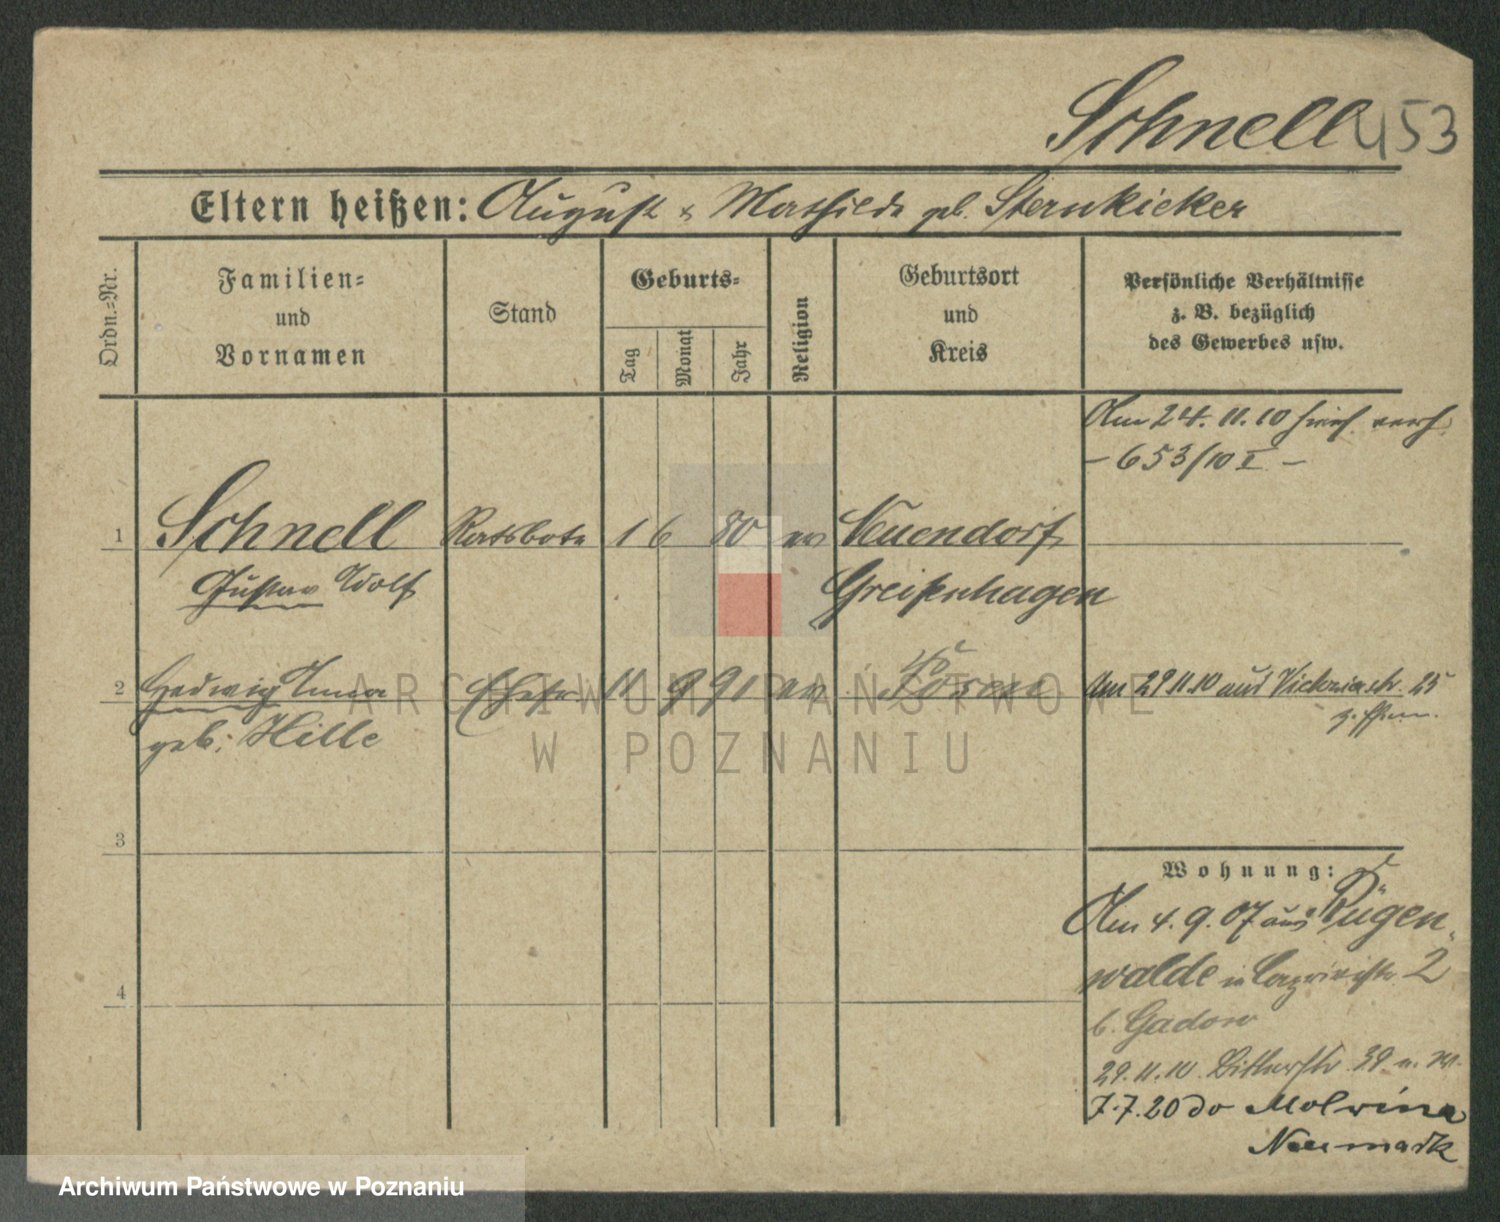 Schnell 453
Eltern heißen: August & Mathilde geb. Sternkicker
Ordn.-Nr.
Familien-
und
Vornamen
Stand
Geburts-
Tag
Monat
Jahr
Religion
Geburtsort
und
Kreis
Persönliche Verhältnisse
z. B. bezüglich
des Gewerbes usw.
Am 24.11.10 hier verh.
- 653/10 I -
1 Schnell Ratsbote 1 6 80 ev Neuendorf
Gustav Adolf Greifenhagen
2 Hedwig Anna Ehefr 11 9 91 ev Posen
geb: Hille
Am 29 11.10 aus Victoriastr. 25
3
4
Wohnung:
Am 4.9.07 aus Rügen-
walde in 2
b. Gadow
29.11.10. 39
7.7.20 do Molwina
Neumark
ARCHIWUM PAŃSTWOWE
W POZNANIU
Archiwum Państwowe w Poznaniu